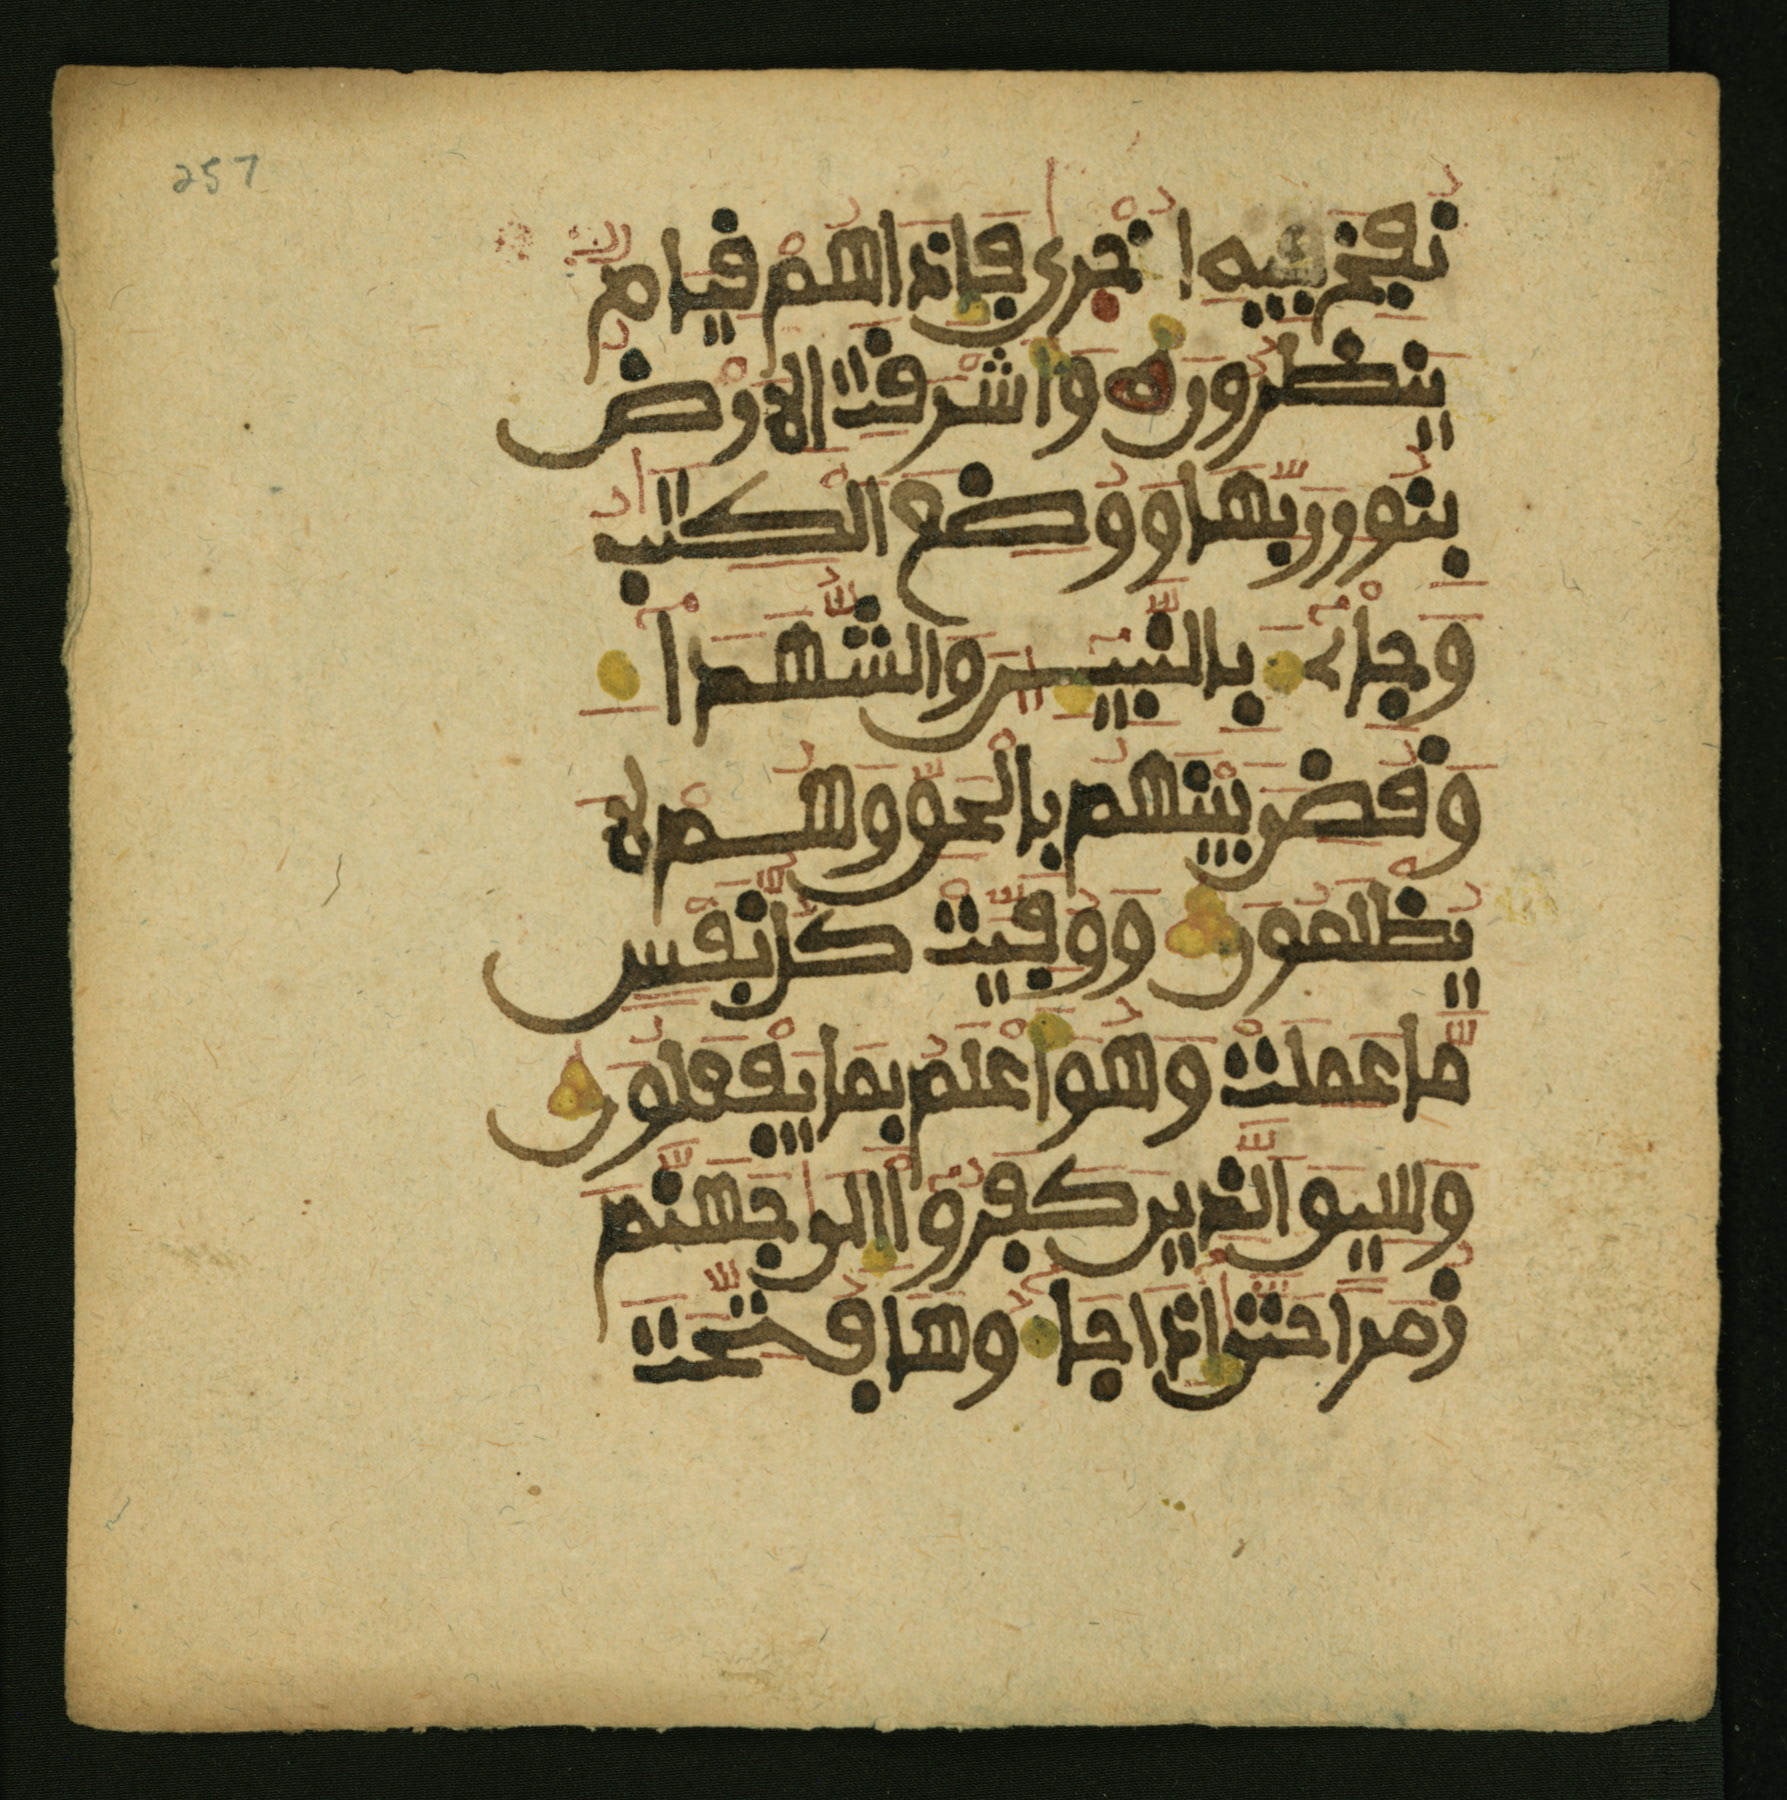 257
نفخ فيه اخرى فاذا هم قيام
ينظرون ه واشرقت الارض
بنور ربها ووضع الكتب
وجاىء بالنبيين والشهدا
وقضى بينهم بالحق وهم لا
يظلمون ووفيت كل نفس
ما عملت وهو اعلم بما يفعلون
وسيق الذين كفروا الى جهنم
زمرا حتى اذا جاوها فتحت